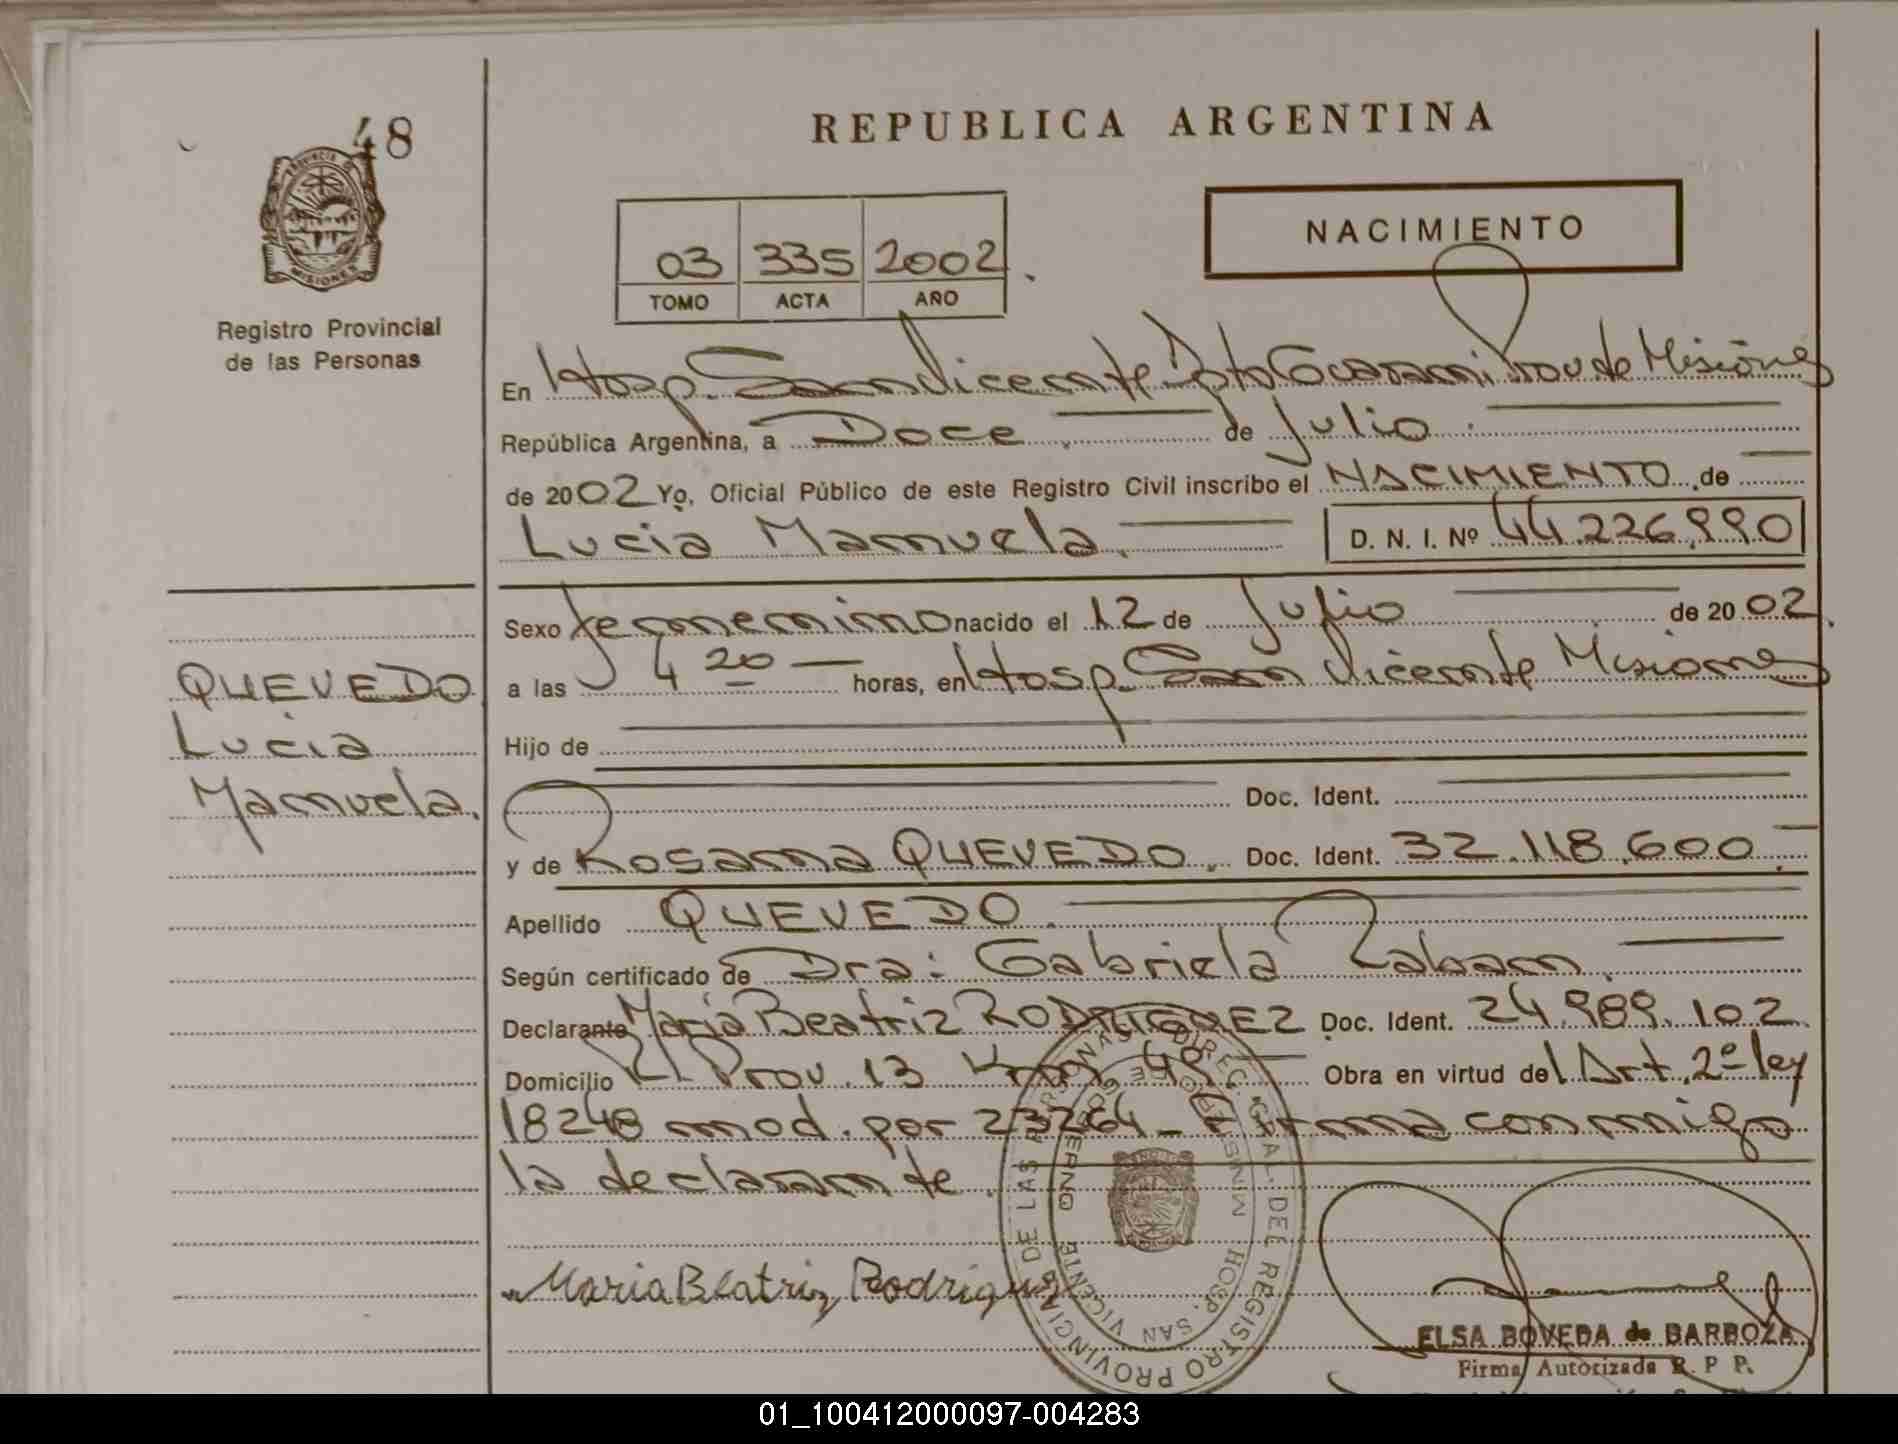 48
PROVINCIA DE
MISIONES
Registro Provincial
de las Personas
REPUBLICA ARGENTINA
03 335 2002
TOMO ACTA AÑO
NACIMIENTO
En Hosp. San Vicente Dpto Guarani Prov. de Misiones
República Argentina, a Doce de Julio
de 2002 Yo, Oficial Público de este Registro Civil inscribo el NACIMIENTO de
Lucia Manuela. D. N. I. Nº 44.226.990
Sexo femenino nacido el 12 de Julio de 2002.
a las 4 20 horas, en Hosp. San Vicente Misiones
QUEVEDO
Lucia
Manuela.
Hijo de
Doc. Ident.
y de Rosana QUEVEDO. Doc. Ident. 32.118.600.
Apellido QUEVEDO.
Según certificado de Dra: Gabriela
Declarante Maria Beatriz RODRIGUEZ Doc. Ident. 24.989.102
Domicilio Prov. 13 Km 49. Obra en virtud del Art. 2º ley
18248 mod. por 23264 - Firma conmigo
la declarante.
Maria Beatriz Rodriguez
DIREC. GRAL. DEL REGISTRO PROVINCIAL DE LAS PERSONAS
MINISTERIO DE GOBIERNO
HOSP. SAN VICENTE
ELSA BOVEDA de BARBOZA
Firma Autorizada R. P P.
01_100412000097-004283